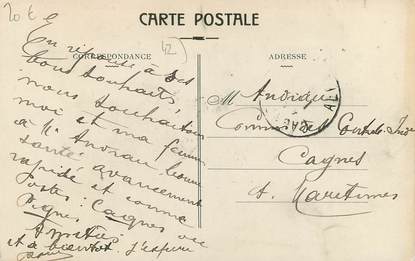 20 €
CARTE POSTALE
42
CORRESPONDANCE
ADRESSE
En réponse à
bons souhaits
nous souhaitons
moi et ma famille
à Mr bonne
santé avancement
rapide et comme
Postes : Cagnes ou
Pignes
Amitiés
et à bientôt. J'espère
M
Commis des Contrib. Ind
Cagnes
A. Maritimes